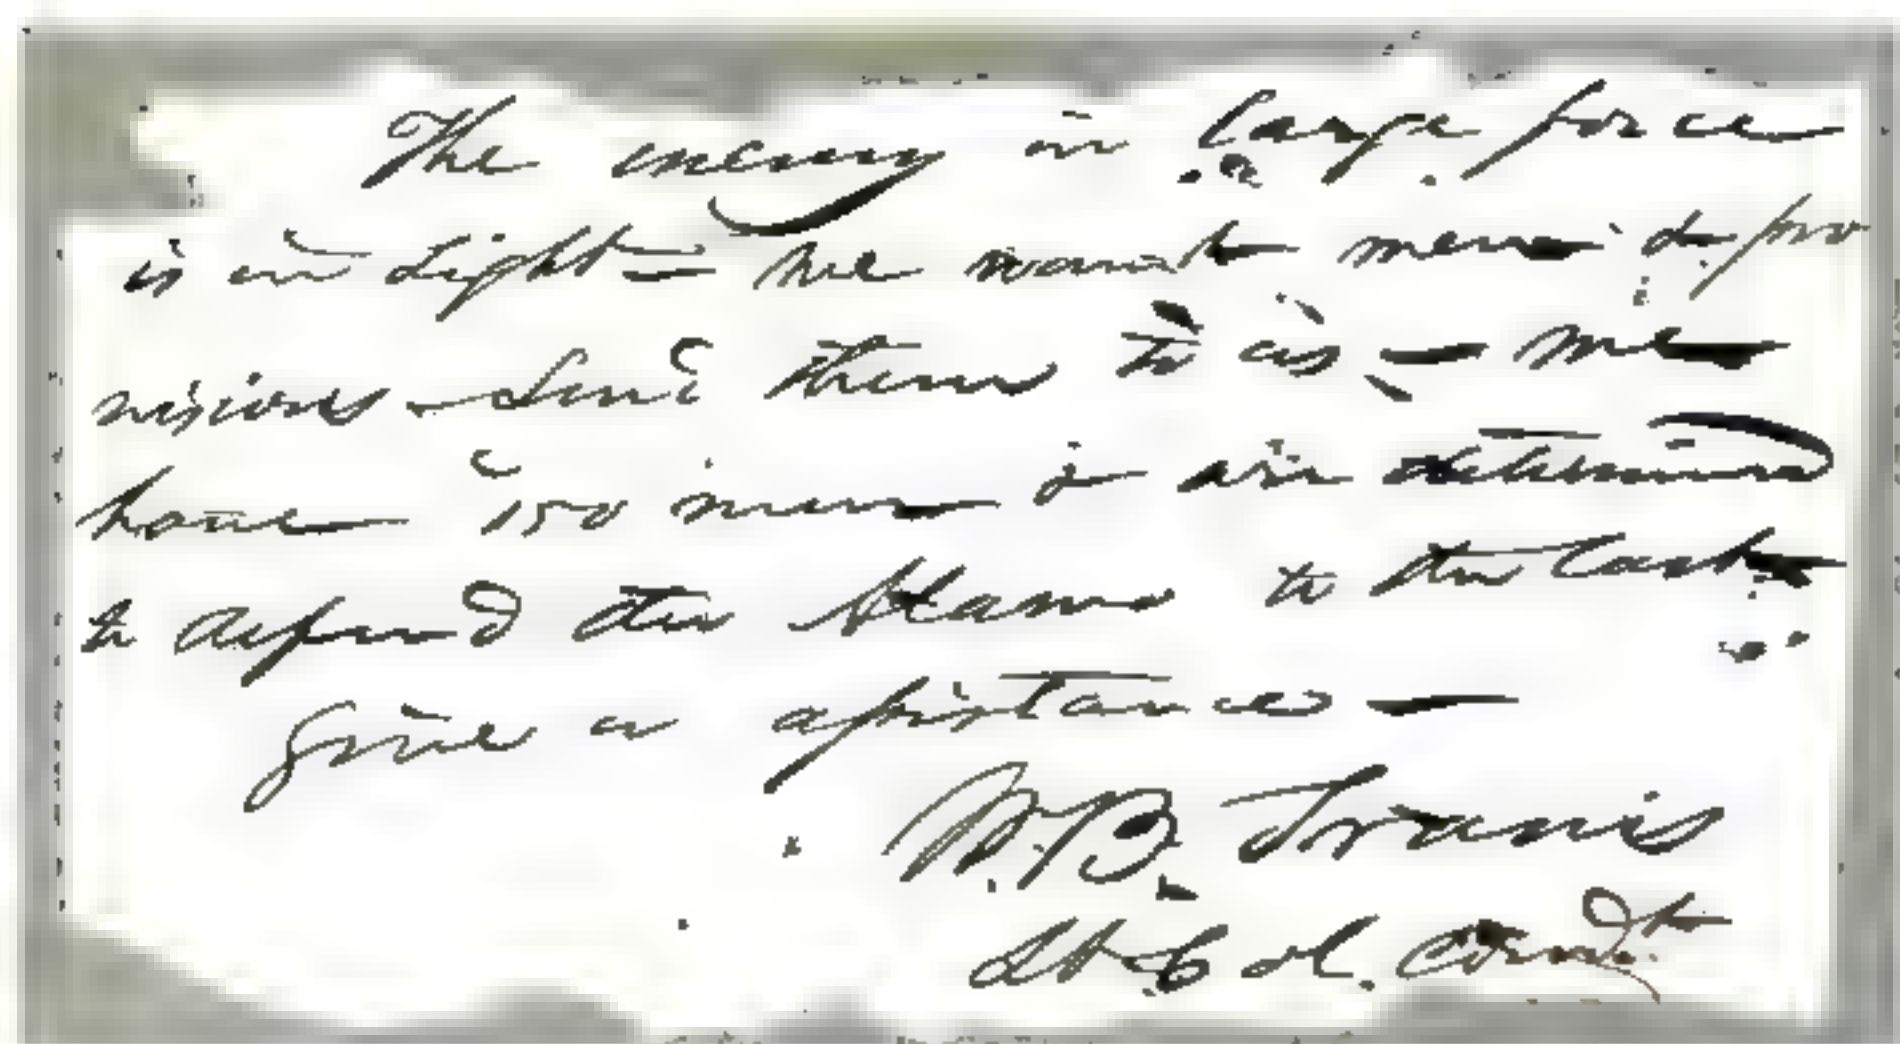 The enemy in large force
is in sight — We want men & pro
visions — Send them to us — We
have 150 men & are determined
to defend the Alamo to the last
Give us assistance —
W. B. Travis
Lt. Col. Comdt